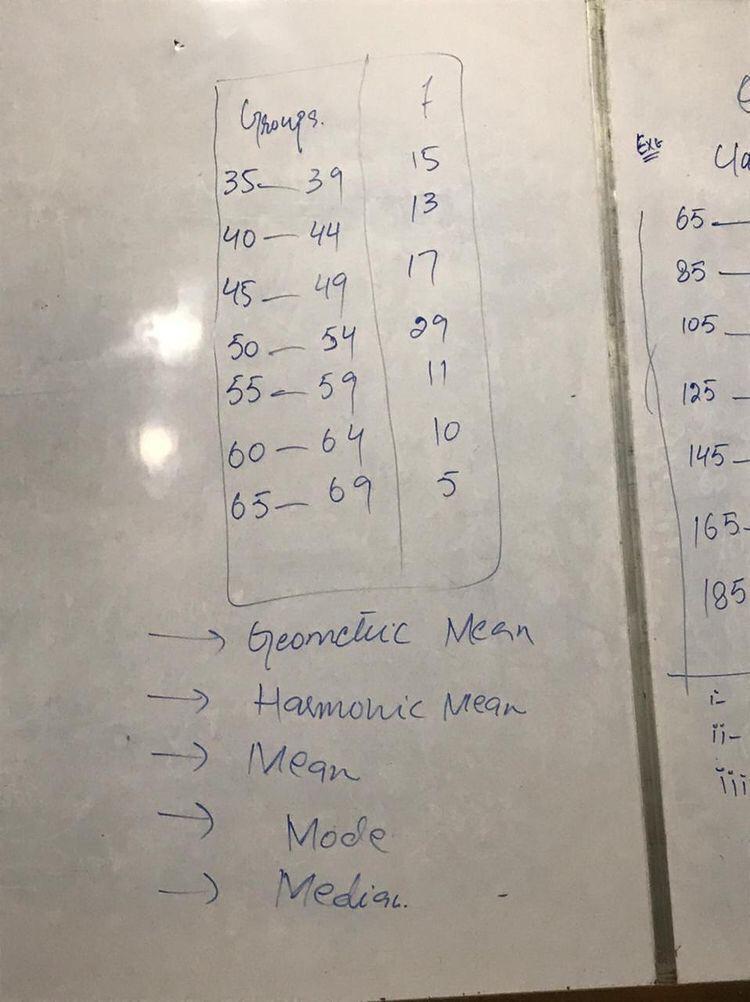 Groups. f
35 — 39 15
40 — 44 13
45 — 49 17
50 — 54 29
55 — 59 11
60 — 64 10
65 — 69 5
→ Geometric Mean
→ Harmonic Mean
→ Mean
→ Mode
→ Median.
Ex:
65 —
85 —
105 —
125 —
145 —
165 -
185
i-
ii-
iii